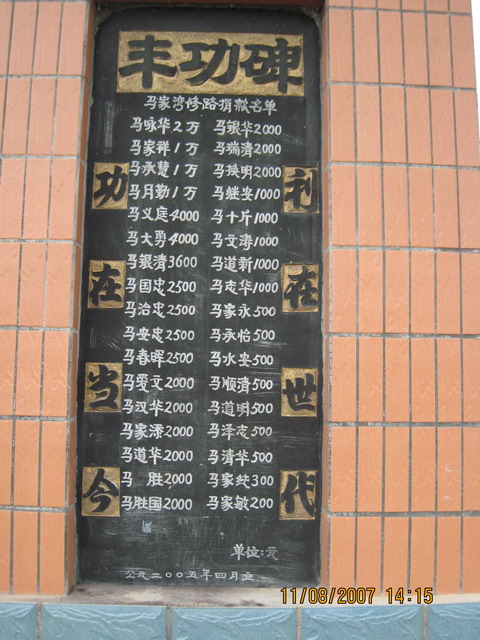 丰功碑
马家湾修路捐款名单
马咏华2万 马银华2000
马家祥1万 马瑞清2000
马承慧1万 马换明2000
马月勤1万 马继安1000
马义庭4000 马十斤1000
马大勇4000 马文涛1000
马银清3600 马道新1000
马国忠2500 马志华1000
马治忠2500 马家永500
马安忠2500 马承怡500
马春晖2500 马水安500
马爱文2000 马顺清500
马汉华2000 马道明500
马家添2000 马泽志500
马道华2000 马清华500
马 胜2000 马家纹300
马胜国2000 马家敏200
功在当今
利在世代
单位:元
公元二00五年四月立
11/08/2007 14:15